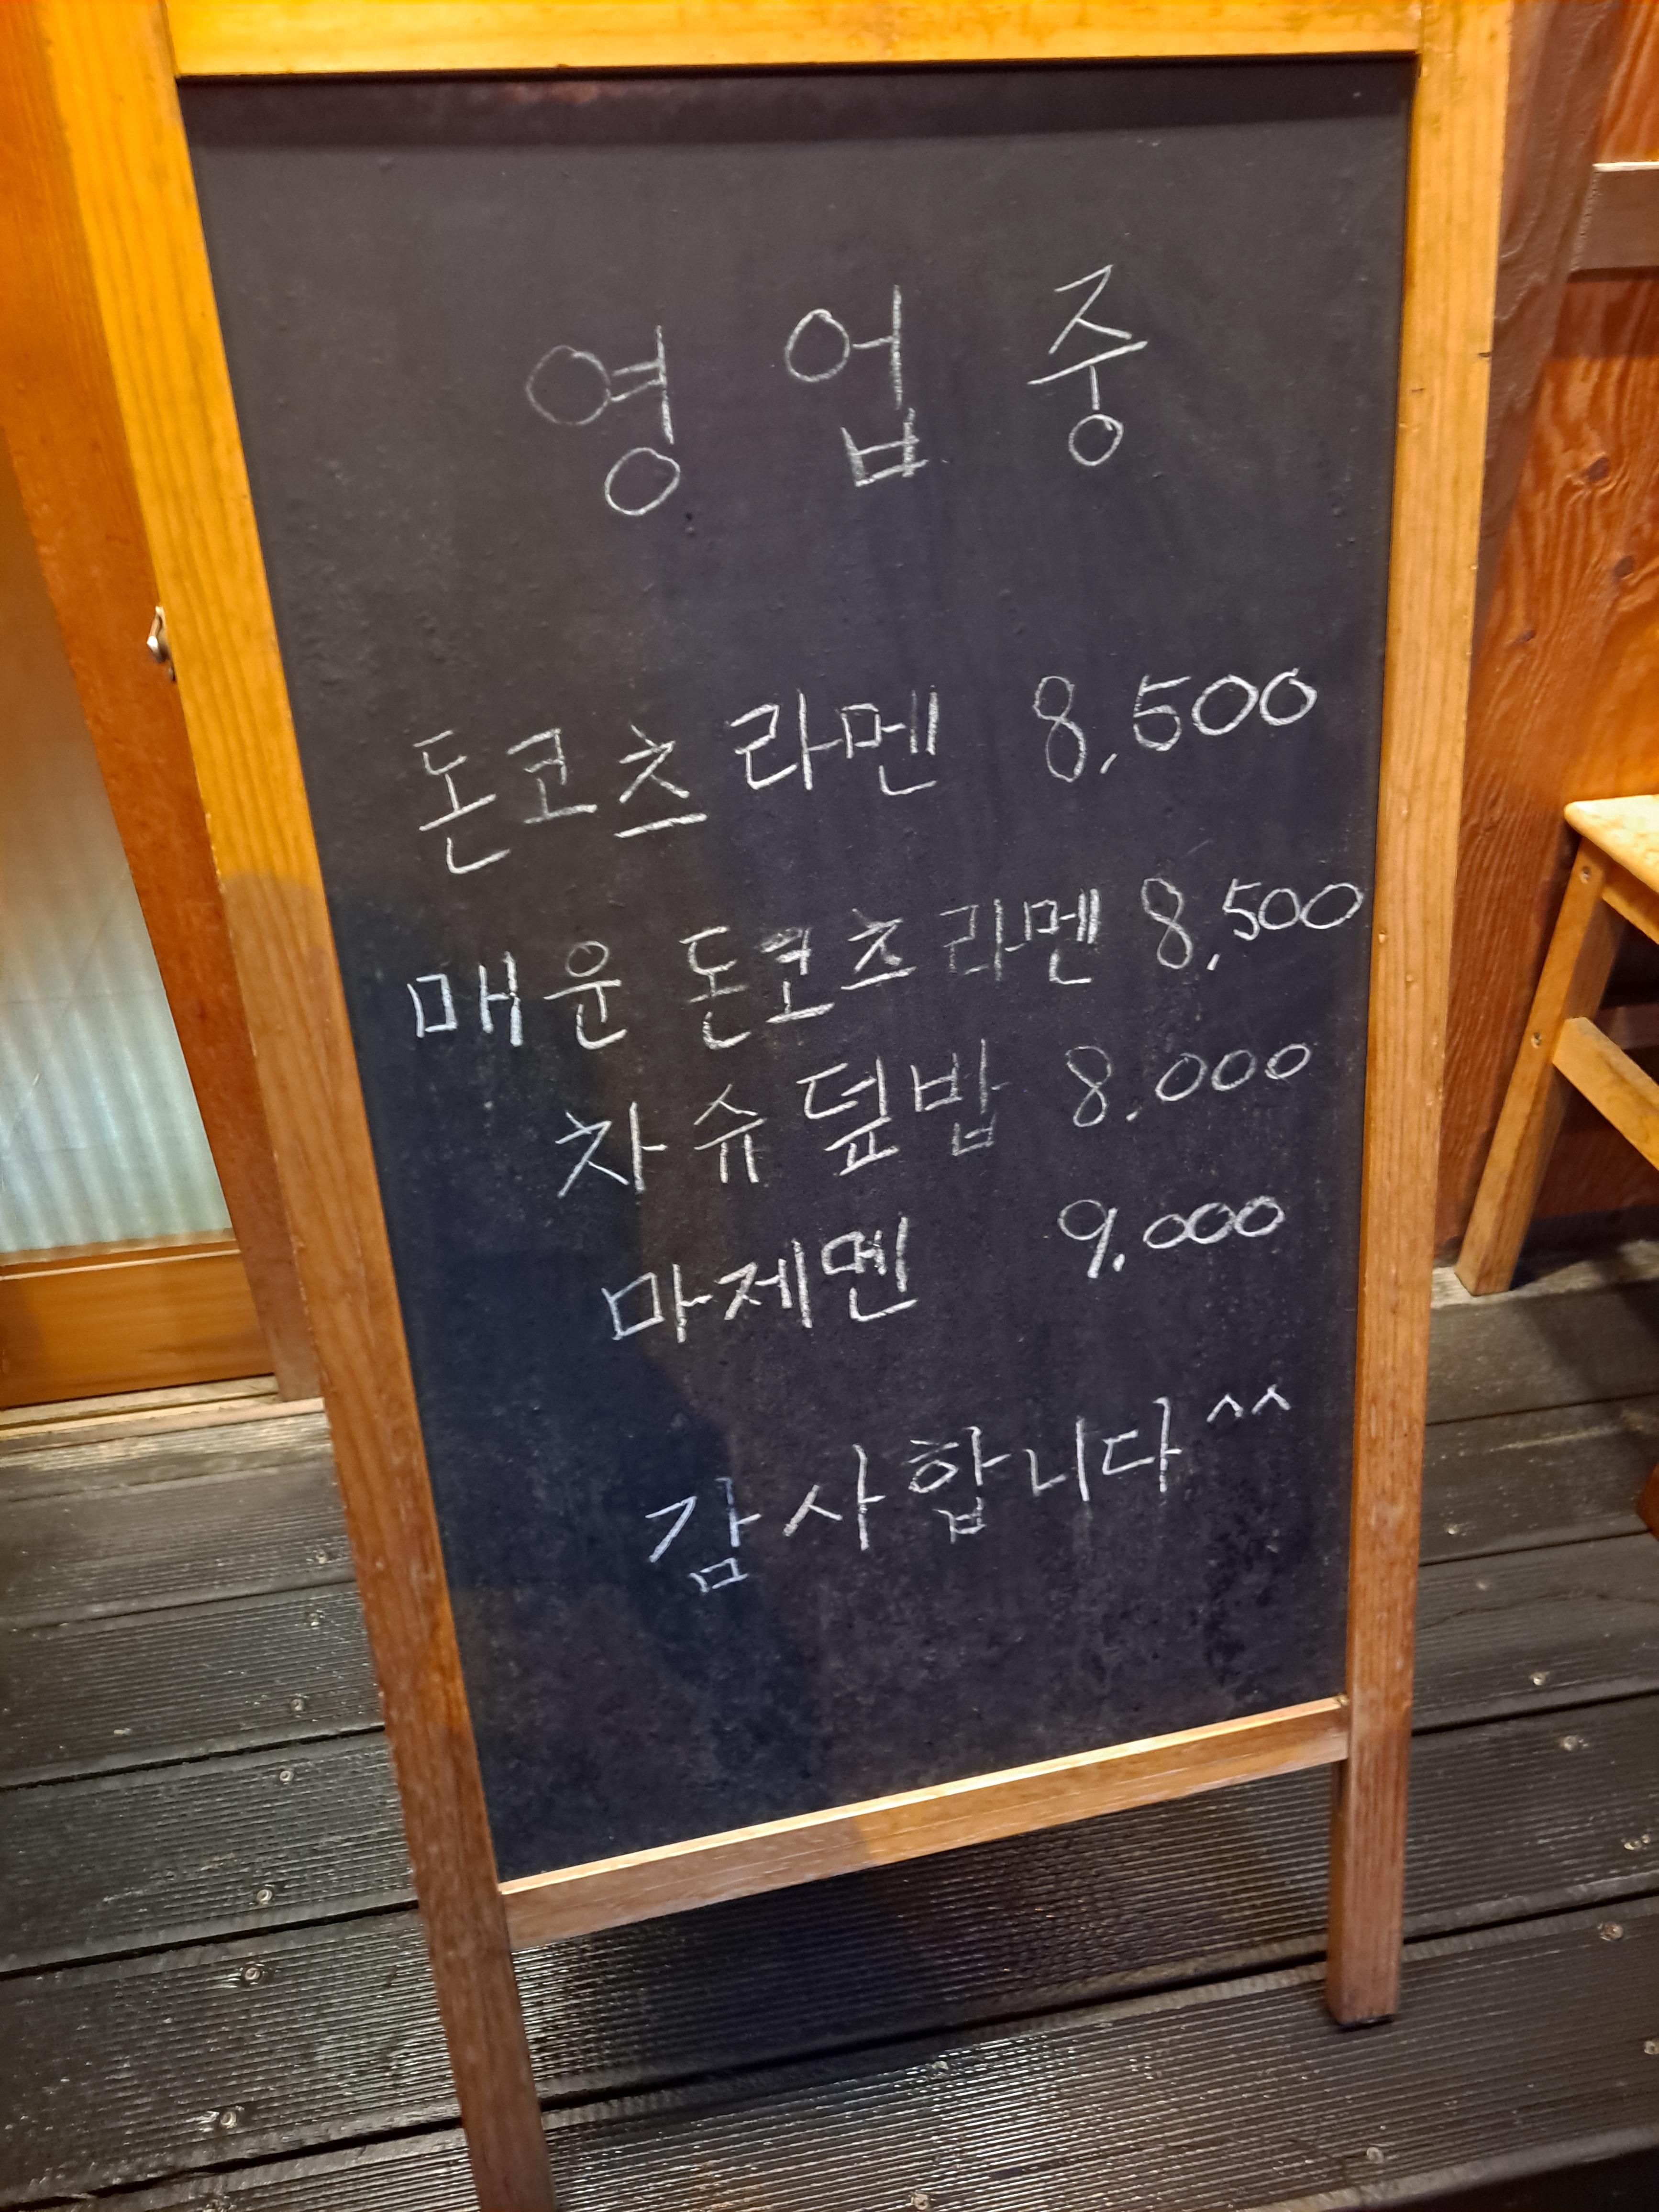 영 업 중
돈코츠 라멘 8,500
매운 돈코츠라멘 8,500
차슈덮밥 8.000
마제멘 9.000
감사합니다 ^^